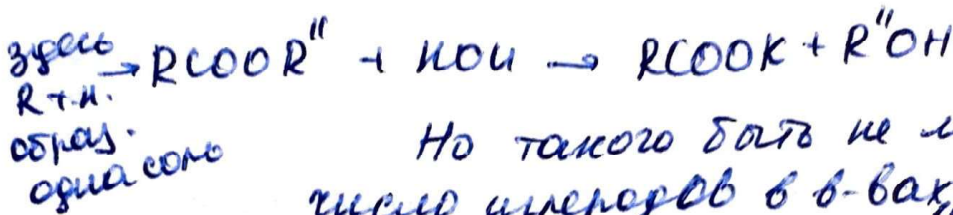 здесь
R т.н.
образ.
одна соль
→ RCOOR" + KOH → RCOOK + R"OH
Но такого быть не м
число углеродов в в-вах